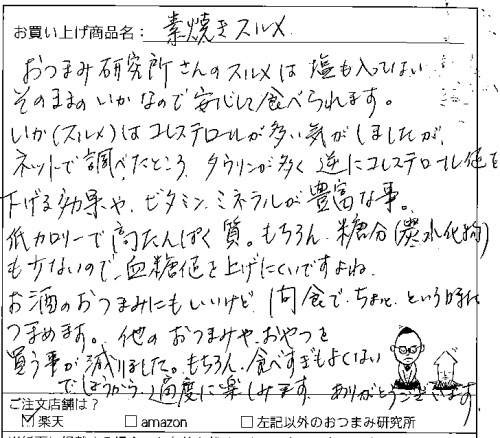 お買い上げ商品名： 素焼きスルメ
おつまみ研究所さんのスルメは塩も入ってない
そのままのいかなので安心して食べられます。
いか(スルメ)はコレステロールが多い気がしましたが、
ネットで調べたところ、タウリンが多く逆にコレステロール値を
下げる効果や、ビタミン、ミネラルが豊富な事。
低カロリーで高たんぱく質。もちろん、糖分(炭水化物)
も少ないので、血糖値を上げにくいですよね。
お酒のおつまみにもいいけど、間食で、ちょっと、という時に
つまめます。他のおつまみや、おやつを
買う事が減りました。もちろん、食べすぎもよくない
でしょうから、適度に楽しみます。ありがとうございます。
ご注文店舗は？
☑楽天 □amazon □左記以外のおつまみ研究所